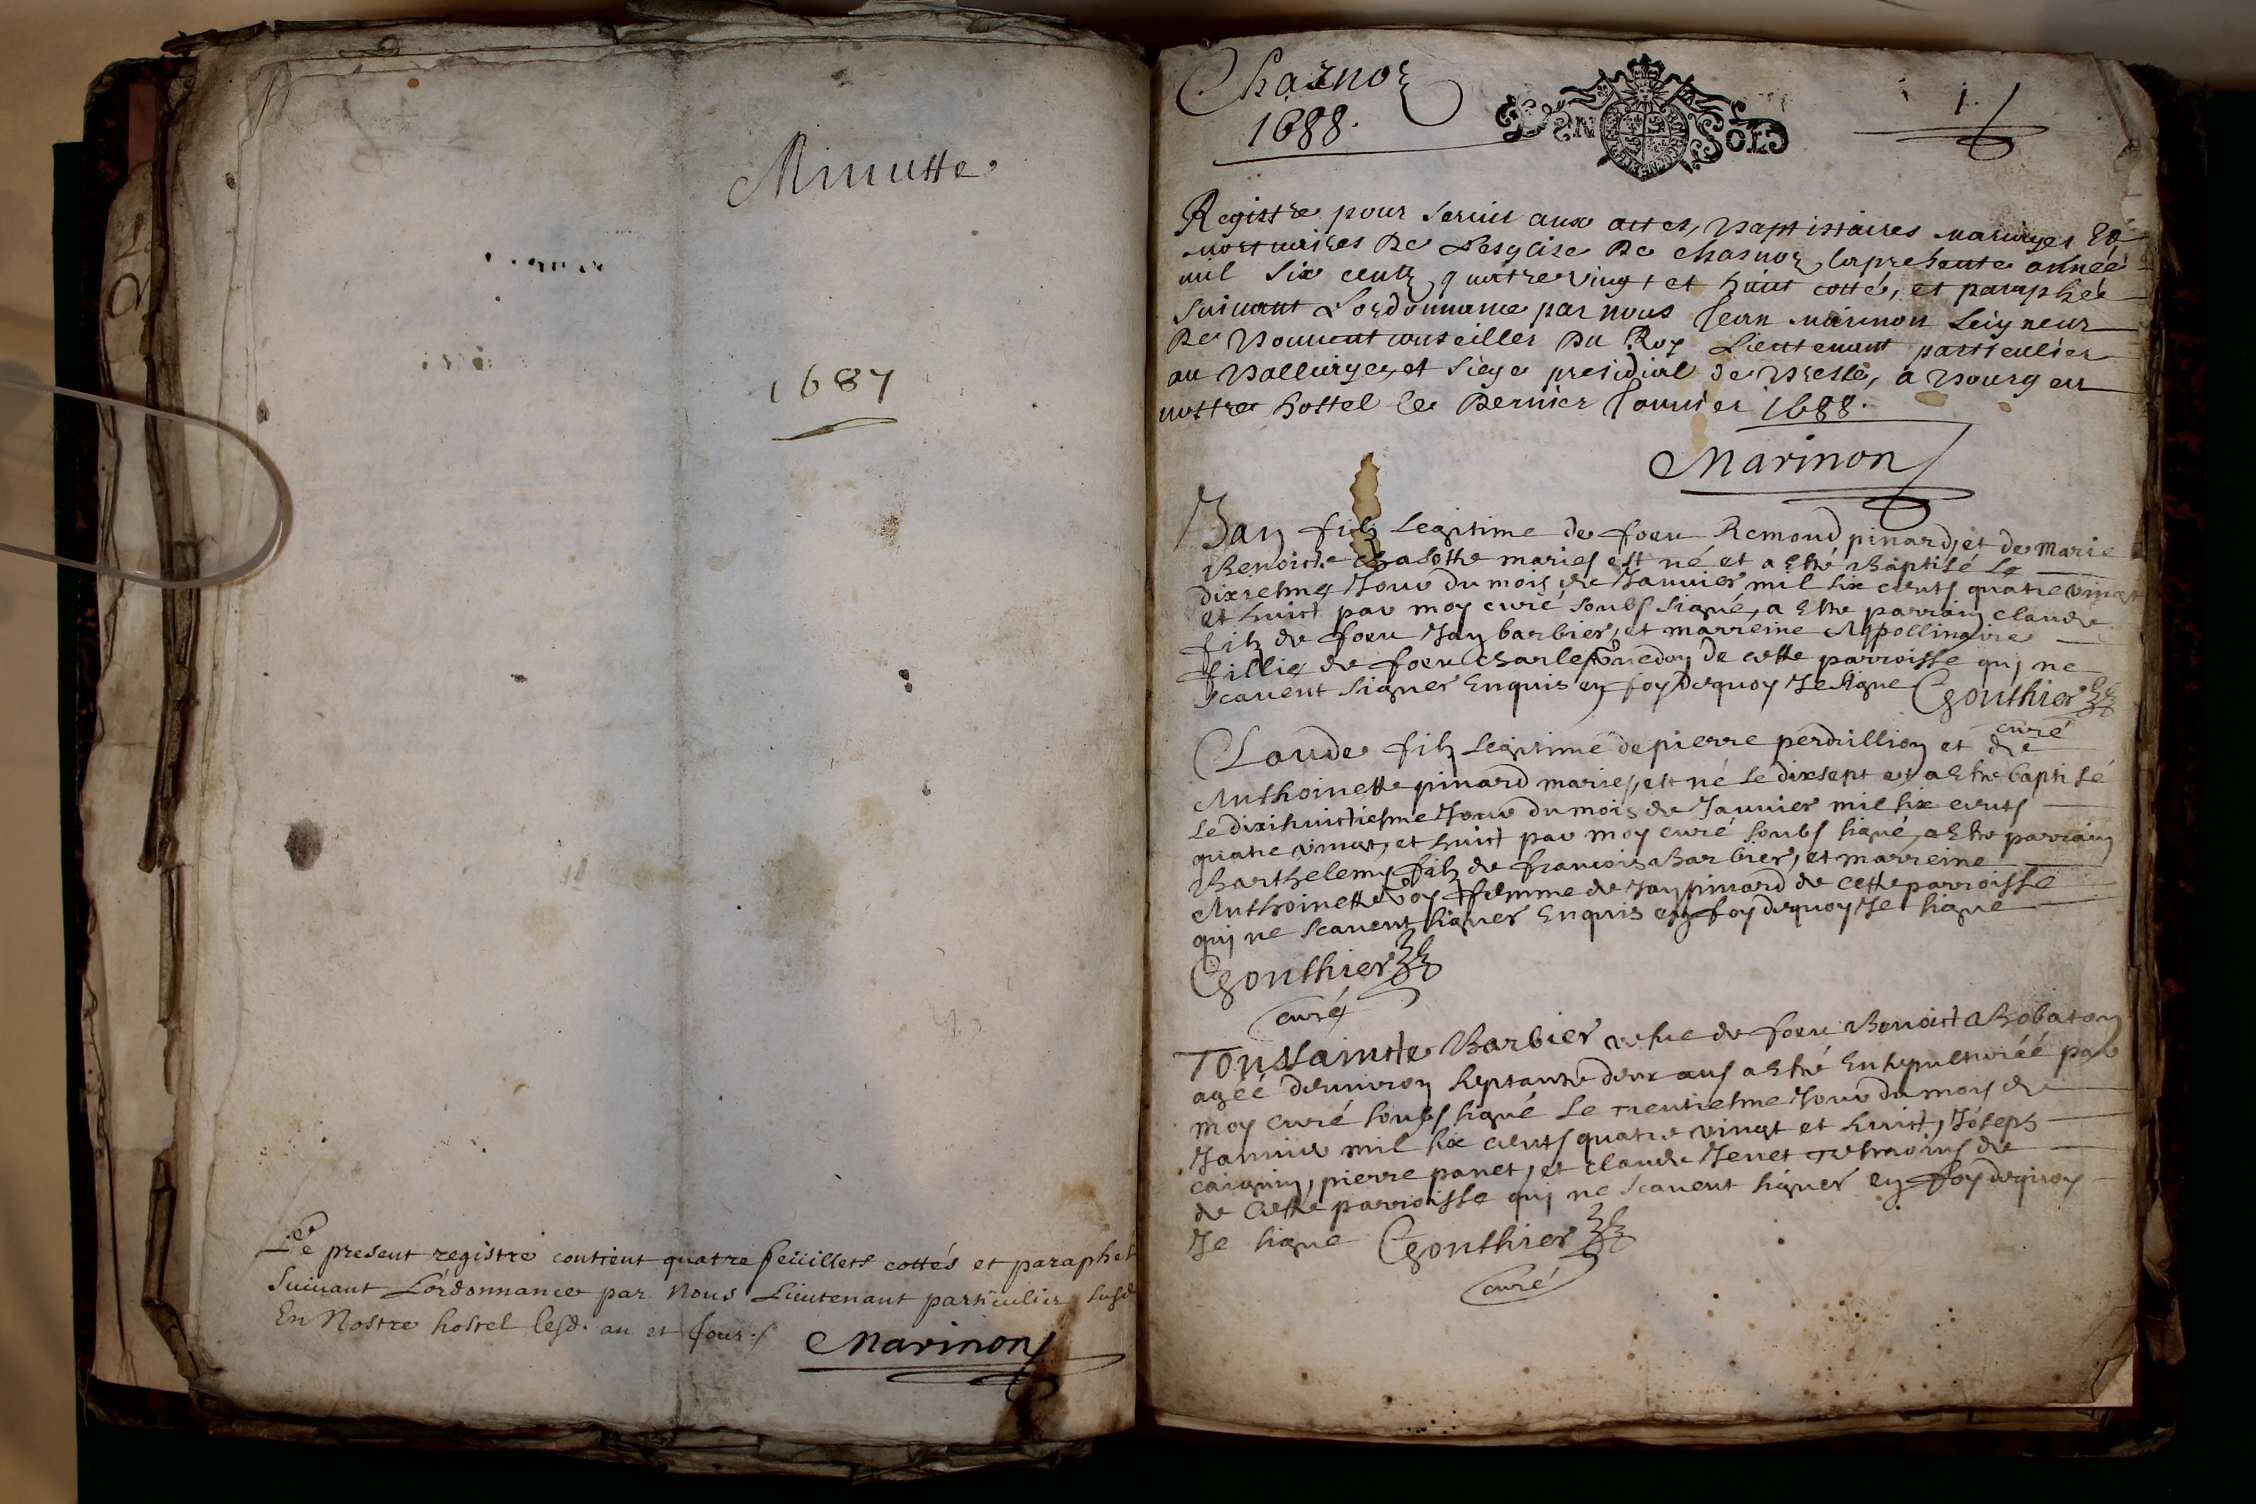 Minutte
1687
Le present registre contient quatre feüillets cottés et paraphes
Suivant L'ordonnance par Nous Lieutenant particulier susd
En Nostre hostel lesd. an et Jour.
Marinon
Charnoz
1688.
1.
DEUX SOLS
Registre pour servir aux actes, Baptistaires mariages Et
mortuaires De L'esglise De Chasnoz la presente année
mil Six centz quatre vingt et huict cotté, et paraphée
Suivant L'ordonnance par nous Jean marinon Seigneur
De conseiller Du Roy Lieutenant particulier
au Balliage, et Siege presidial de Bresse, a Bourg en
nostre hostel le Dernier Janvier 1688.
Marinon
Jan filz Legitime de foeu Remond pinard, et de Marie
Benoicte mariés est né et a esté Baptisé Le
dixiesme Jour du mois de Janvier mil six cents quatre vingt
et huict par moy curé soubs signé, a esté parrain claude
filz de foeu Jan barbier, et marreine Appollinaire
fillie de foeu charle de cette parroisse qui ne
scavent signer Enquis en foy dequoy Je signe Gonthier
curé
Claude filz Legitime de pierre perdrillion et de
Anthoinette pinard mariés, est né le dixsept et a esté baptisé
Le dixihuictiesme Jour du mois de Janvier mil six cents
quatre vingt, et huict par moy curé soubs signé, a esté parrain
Barthelemy filz de francois Barbier, et marreine
Anthoinette femme de Jan pinard de cette parroisse
qui ne scavent signer Enquis en foy dequoy Je signe
Gonthier
curé
Toussaincte Barbier vefue de foeu Benoict Robaton
agéé denviron septante deux ans a esté Ensepulturéé par
moy curé soubs signé Le trentiesme Jour du mois de
Janvier mil six cents quatre vingt et huict, Joseph
pierre panet, et claude Jenet tesmoins de
de cette parroisse qui ne scavent signer en foy dequoy
Je signe Gonthier
curé